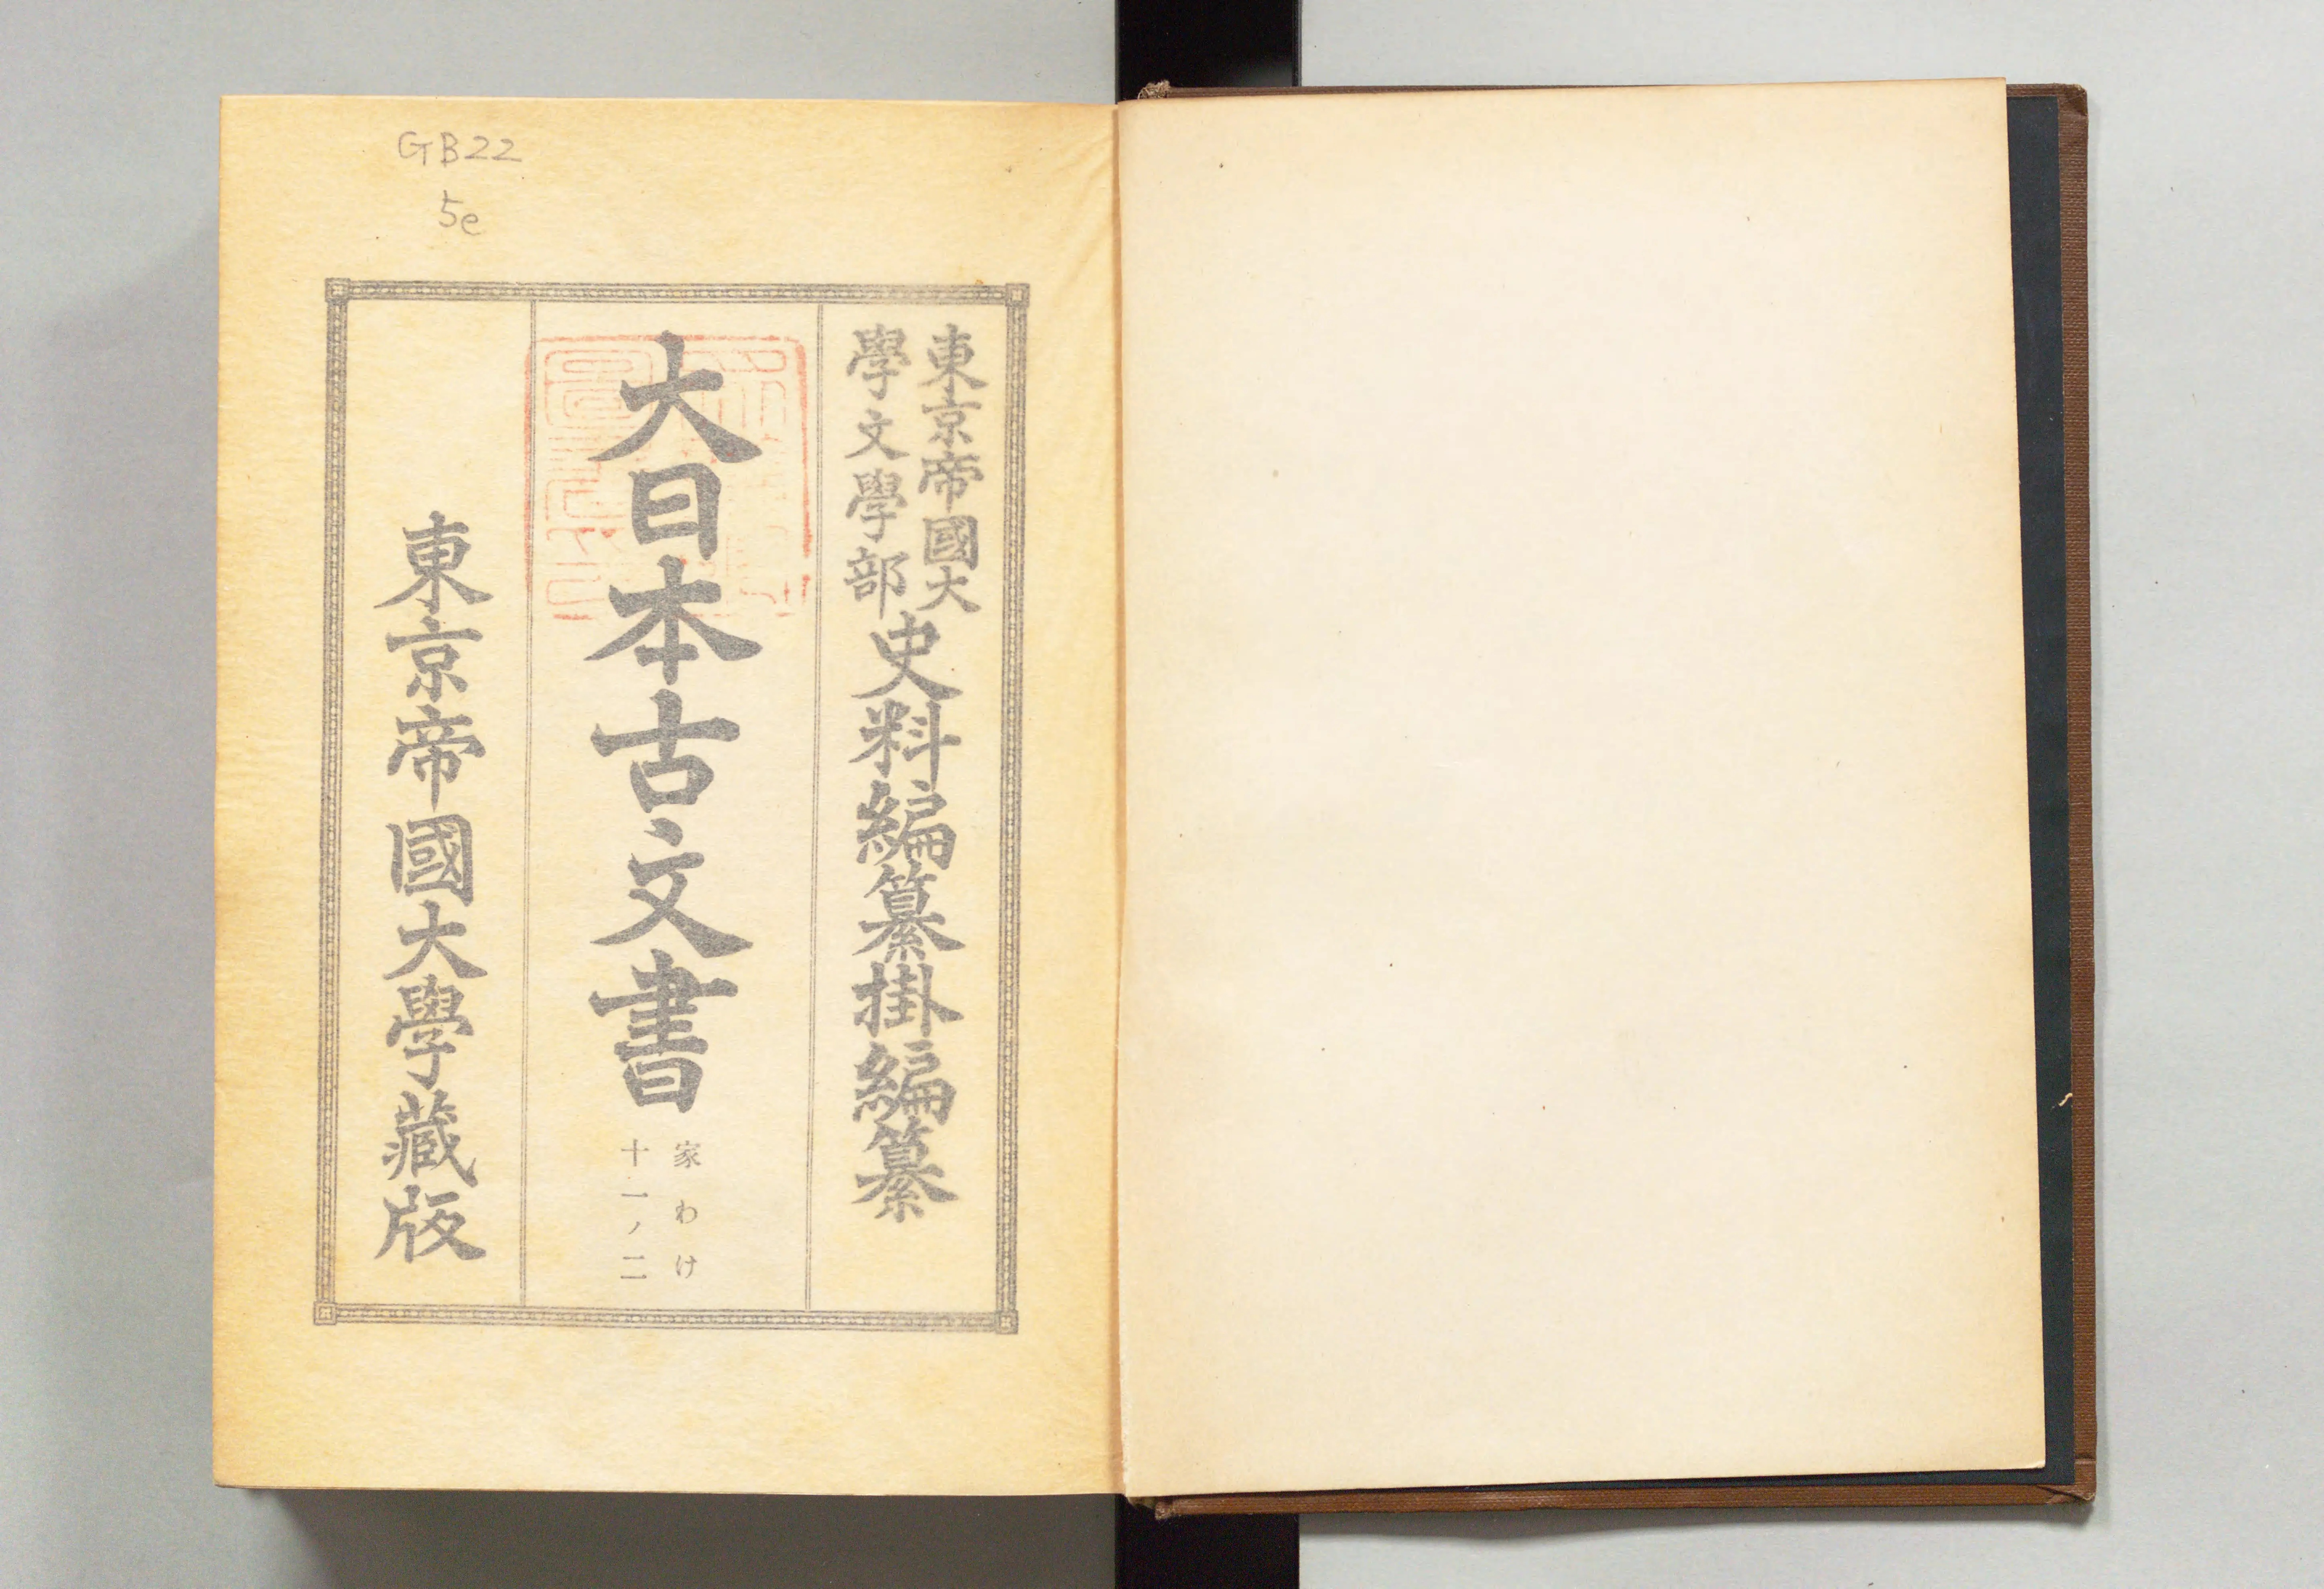 GB22
5e
東京帝國大
學文學部
史料編纂掛編纂
大日本古文書
家わけ
十一ノ二
東京帝國大學藏版